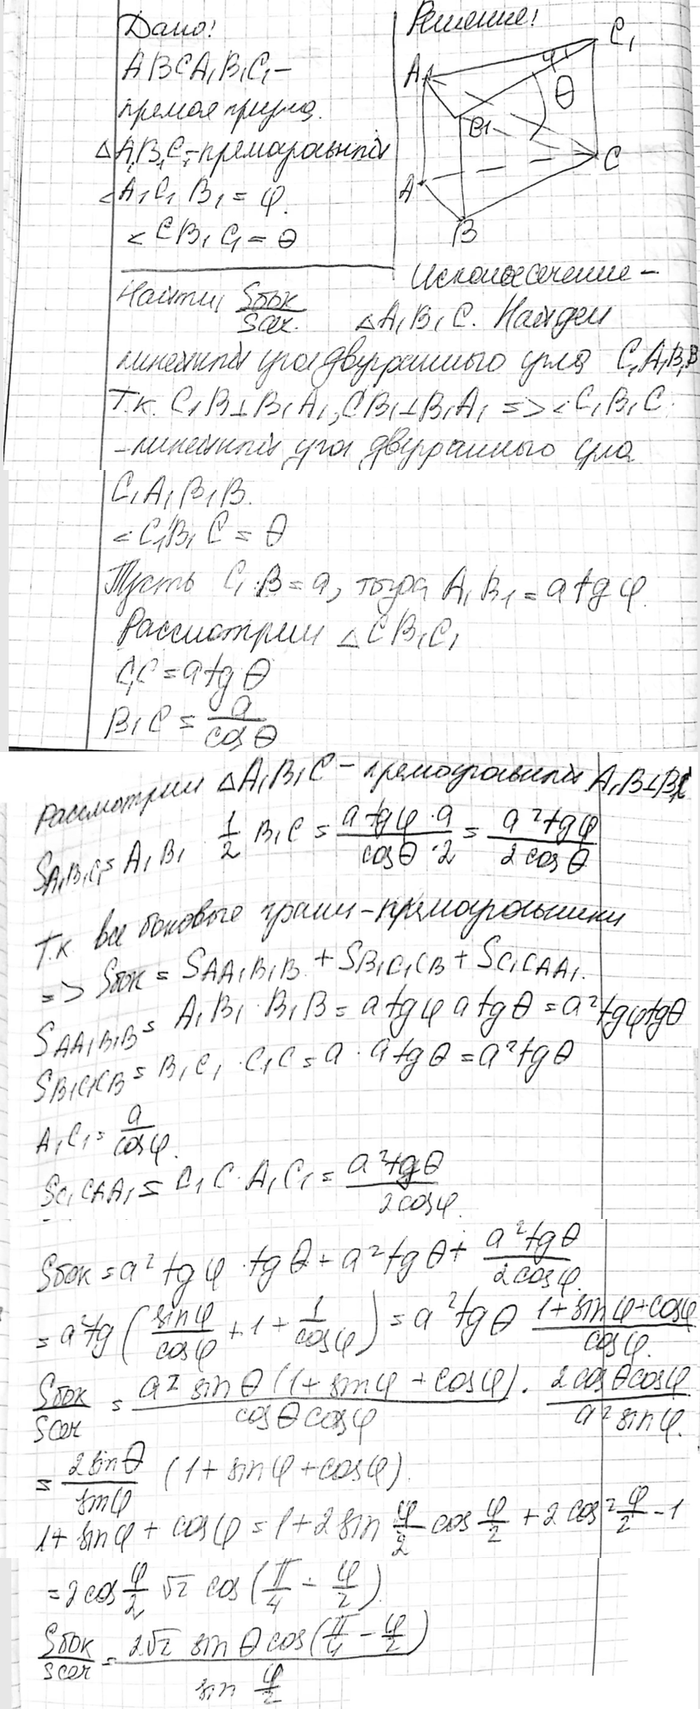 Дано!
ABCA₁B₁C₁ –
прямая призма.
△A₁B₁C₁ – прямоугольный
∠A₁C₁B₁ = φ.
∠CB₁C₁ = θ
Найти: Sбок/Sсеч.
Решение!
A₁
C₁
φ
θ
B₁
A
C
B
Искомое сечение –
△A₁B₁C. Найдем
линейный угол двугранного угла C₁A₁B₁B
Т.к. C₁B ⊥ B₁A₁, CB₁ ⊥ B₁A₁ => ∠C₁B₁C.
– линейный угол двугранного угла
C₁A₁B₁B.
∠C₁B₁C = θ
Пусть C₁B = a, тогда A₁B₁ = a tg φ.
Рассмотрим △CB₁C₁
C₁C = a tg θ
B₁C = a/cos θ
Рассмотрим △A₁B₁C – прямоугольный A₁B ⊥ B₁C
S_A₁B₁C₁ = A₁B₁ · 1/2 B₁C = (a tg φ · a)/(cos θ · 2) = (a² tg φ)/(2 cos θ)
Т.к. все боковые грани – прямоугольники
=> Sбок = S_AA₁B₁B + S_B₁C₁CB + S_C₁CAA₁.
S_AA₁B₁B = A₁B₁ · B₁B = a tg φ a tg θ = a² tg φ tg θ
S_B₁C₁CB = B₁C₁ · C₁C = a · a tg θ = a² tg θ
A₁C₁ = a/cos φ.
S_C₁CAA₁ = C₁C · A₁C₁ = (a² tg θ)/(2 cos φ).
Sбок = a² tg φ · tg θ + a² tg θ + (a² tg θ)/(2 cos φ)
= a² tg (sin φ/cos φ + 1 + 1/cos φ) = a² tg θ (1 + sin φ + cos φ)/cos φ.
Sбок/Sсеч = (a² sin θ (1 + sin φ + cos φ))/(cos θ cos φ) · (2 cos θ cos φ)/(a² sin φ).
= (2 sin θ)/(sin φ) (1 + sin φ + cos φ).
1 + sin φ + cos φ = 1 + 2 sin φ/2 cos φ/2 + 2 cos² φ/2 – 1
= 2 cos φ/2 √2 cos (π/4 – φ/2).
Sбок/Sсеч = (2√2 sin θ cos (π/4 – φ/2))/(sin φ/2)